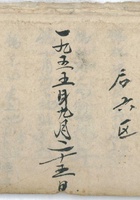 后六区
一九五五年九月二十五日